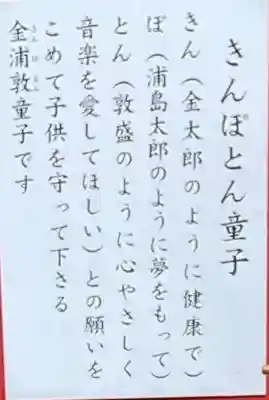 きんぽとん童子
きん(金太郎のように健康で)
ぽ(浦島太郎のように夢をもって)
とん(敦盛のように心やさしく
音楽を愛してほしい)との願いを
こめて子供を守って下さる
金浦敦童子です